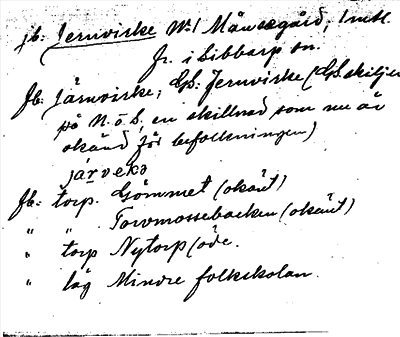 jb: Jernvirke № 1 Månsagård, 1 mtl.
Fr. i Sibbarp sn.
Jb. Järnvirke, GS: Jernvirke (GS skiljer
på N. o S., en skillnad som nu är
okänd för befolkningen)
jä́rvekə
Jb: torp. Gömmet (okänt)
" " Torvmossebacken (okänt)
" torp Nytorp (öde.
" läg Mindre folkskolan.